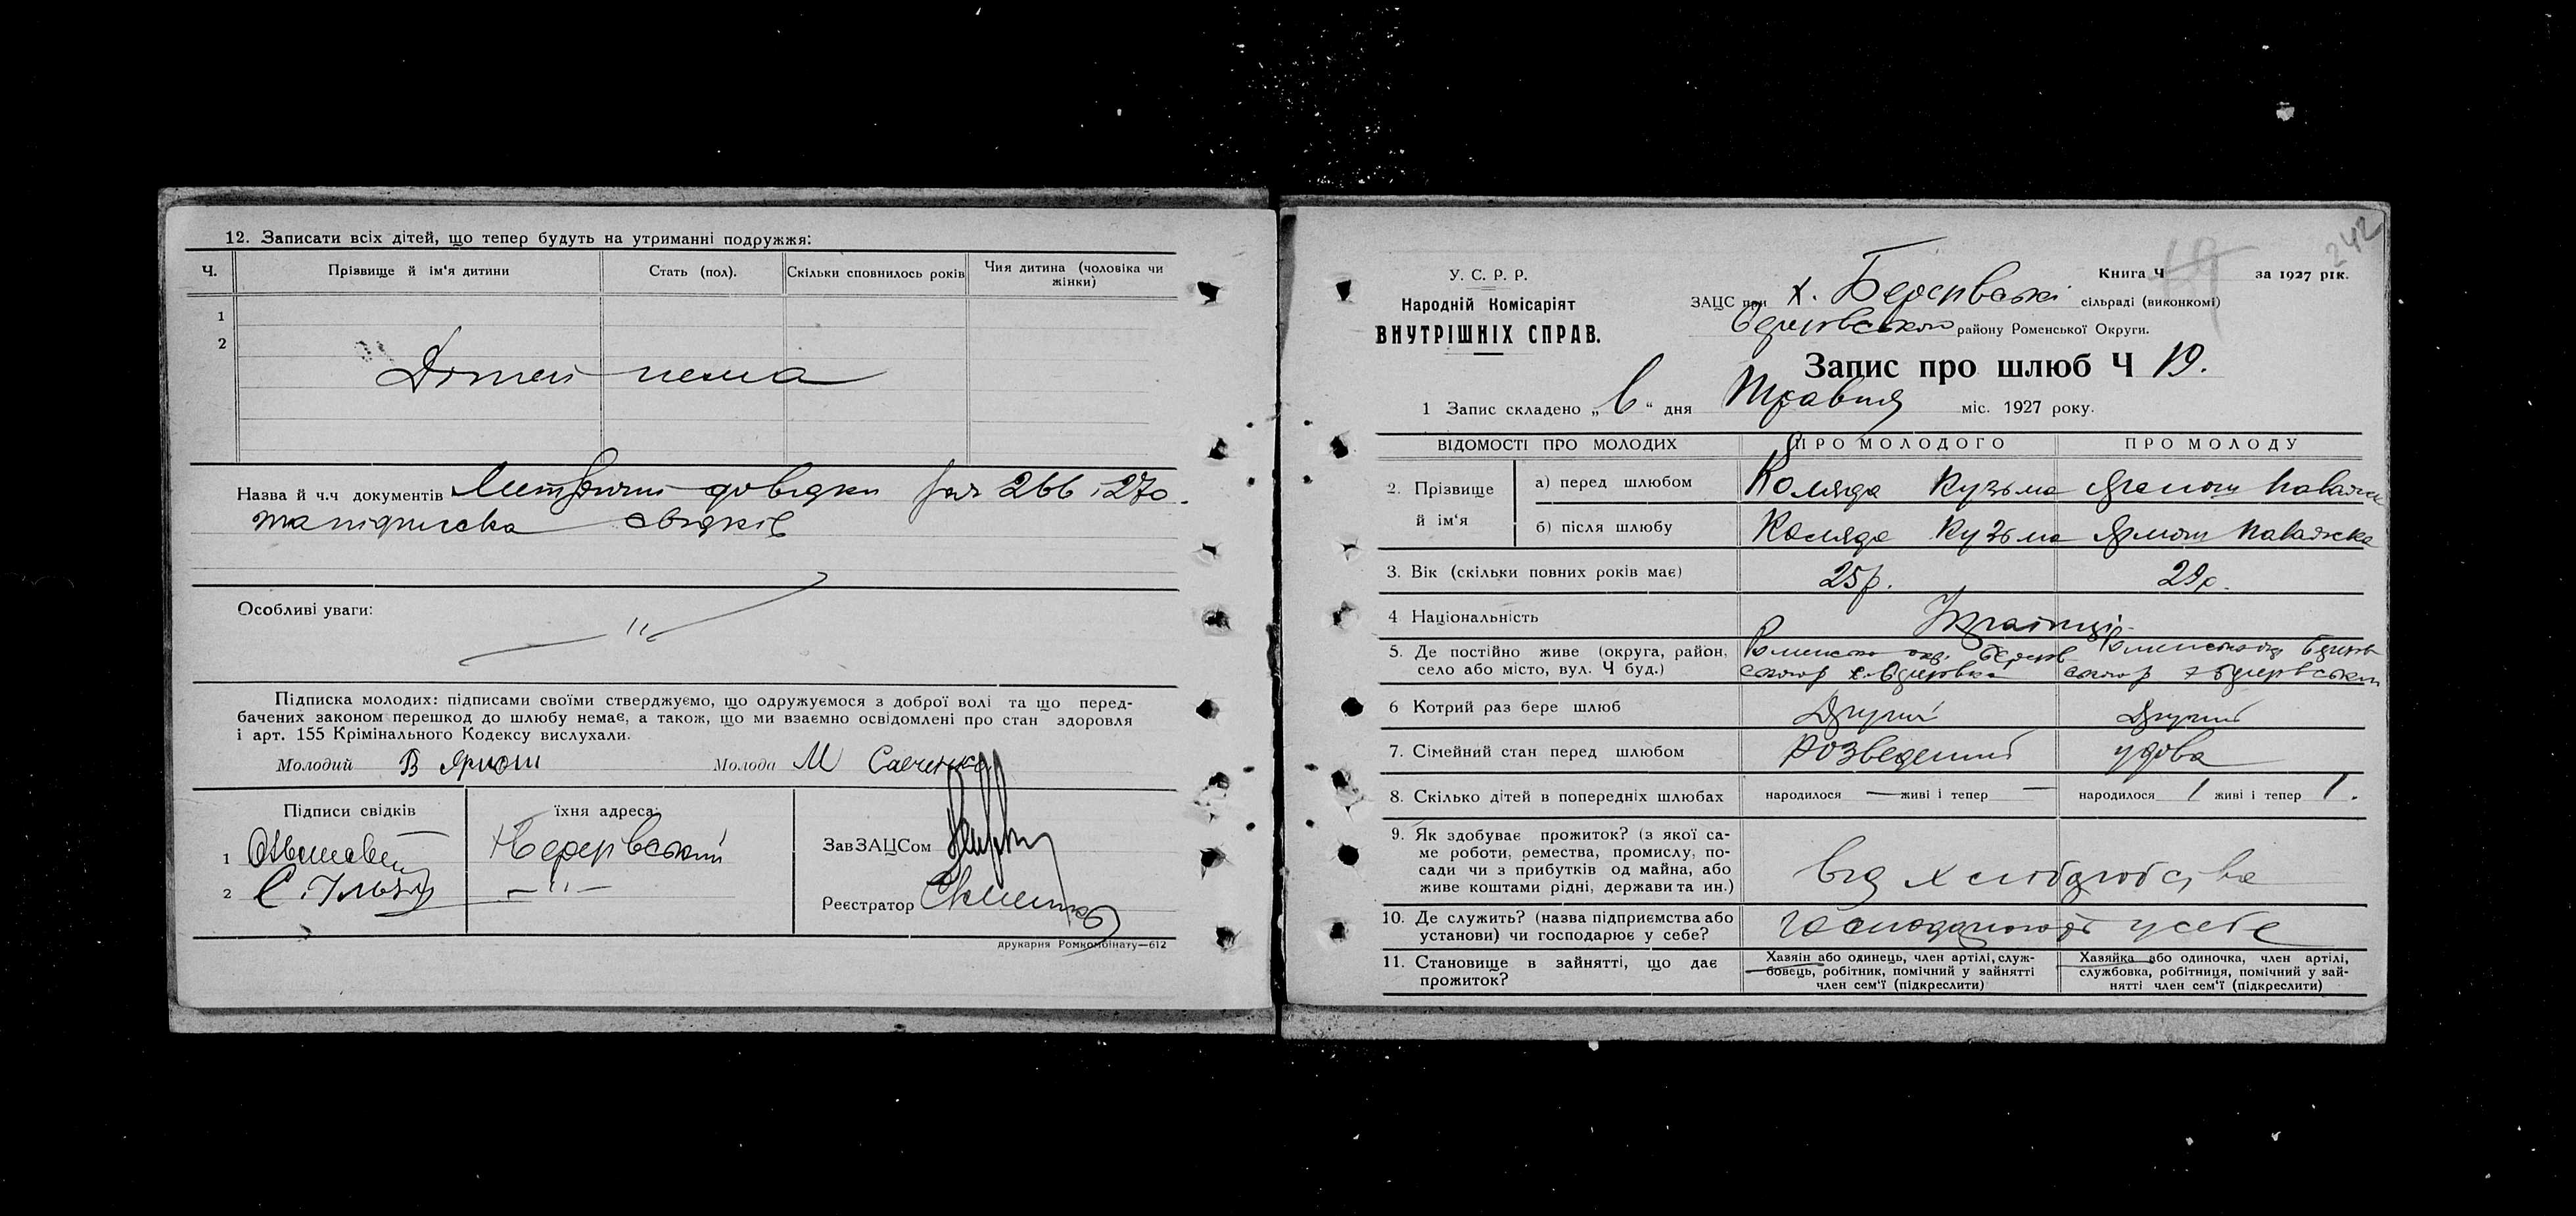 12. Записати всіх дітей, що тепер будуть на утриманні подружжя:
Ч. Прізвище й ім'я дитини Стать (пол). Скільки сповнилось років Чия дитина (чоловіка чи жінки)
1
2
Дітей нема
Назва й ч.ч документів Метричні довідки 266 і 270.
та підписка свідків
Особливі уваги:
Підписка молодих: підписами своїми стверджуємо, що одружуємося з доброї волі та що перед-
бачених законом перешкод до шлюбу немає, а також, що ми взаємно освідомлені про стан здоровля
і арт. 155 Крімінального Кодексу вислухали.
Молодий В Ярмош Молода М Савченко
Підписи свідків їхня адреса:
1
2 С.
ЗавЗАЦСом
Реєстратор
друкарня Ромкомбінату—612
242
У. С. Р. Р.
Народній Комісаріят
ВНУТРІШНІХ СПРАВ.
Книга Ч за 1927 рік.
ЗАЦС при х. сільраді (виконкомі)
району Роменської Округи.
Запис про шлюб Ч 19.
1 Запис складено „6" дня Травня міс. 1927 року.
ВІДОМОСТІ ПРО МОЛОДИХ ПРО МОЛОДОГО ПРО МОЛОДУ
2. Прізвище й ім'я
а) перед шлюбом Коляда Кузьма
б) після шлюбу Коляда Кузьма Ярмош
3. Вік (скільки повних років має) 25р. 29р.
4 Національність Українці
5. Де постійно живе (округа, район,
село або місто, вул. Ч буд.)
6 Котрий раз бере шлюб Другий Другий
7. Сімейний стан перед шлюбом Розведений удова
8. Скілько дітей в попередніх шлюбах народилося — живі і тепер — народилося 1 живі і тепер 1.
9. Як здобуває прожиток? (з якої са-
ме роботи, ремества, промислу, по-
сади чи з прибутків од майна, або
живе коштами рідні, держави та ин.)
від хліборобства
10. Де служить? (назва підприємства або
установи) чи господарює у себе?
у себе
11. Становище в зайнятті, що дає
прожиток?
Хазяін або одинець, член артілі, служ-
бовець, робітник, помічний у зайнятті
член сем'ї (підкреслити)
Хазяйка або одиночка, член артілі,
службовка, робітниця, помічний у зай-
нятті член сем'ї (підкреслити)